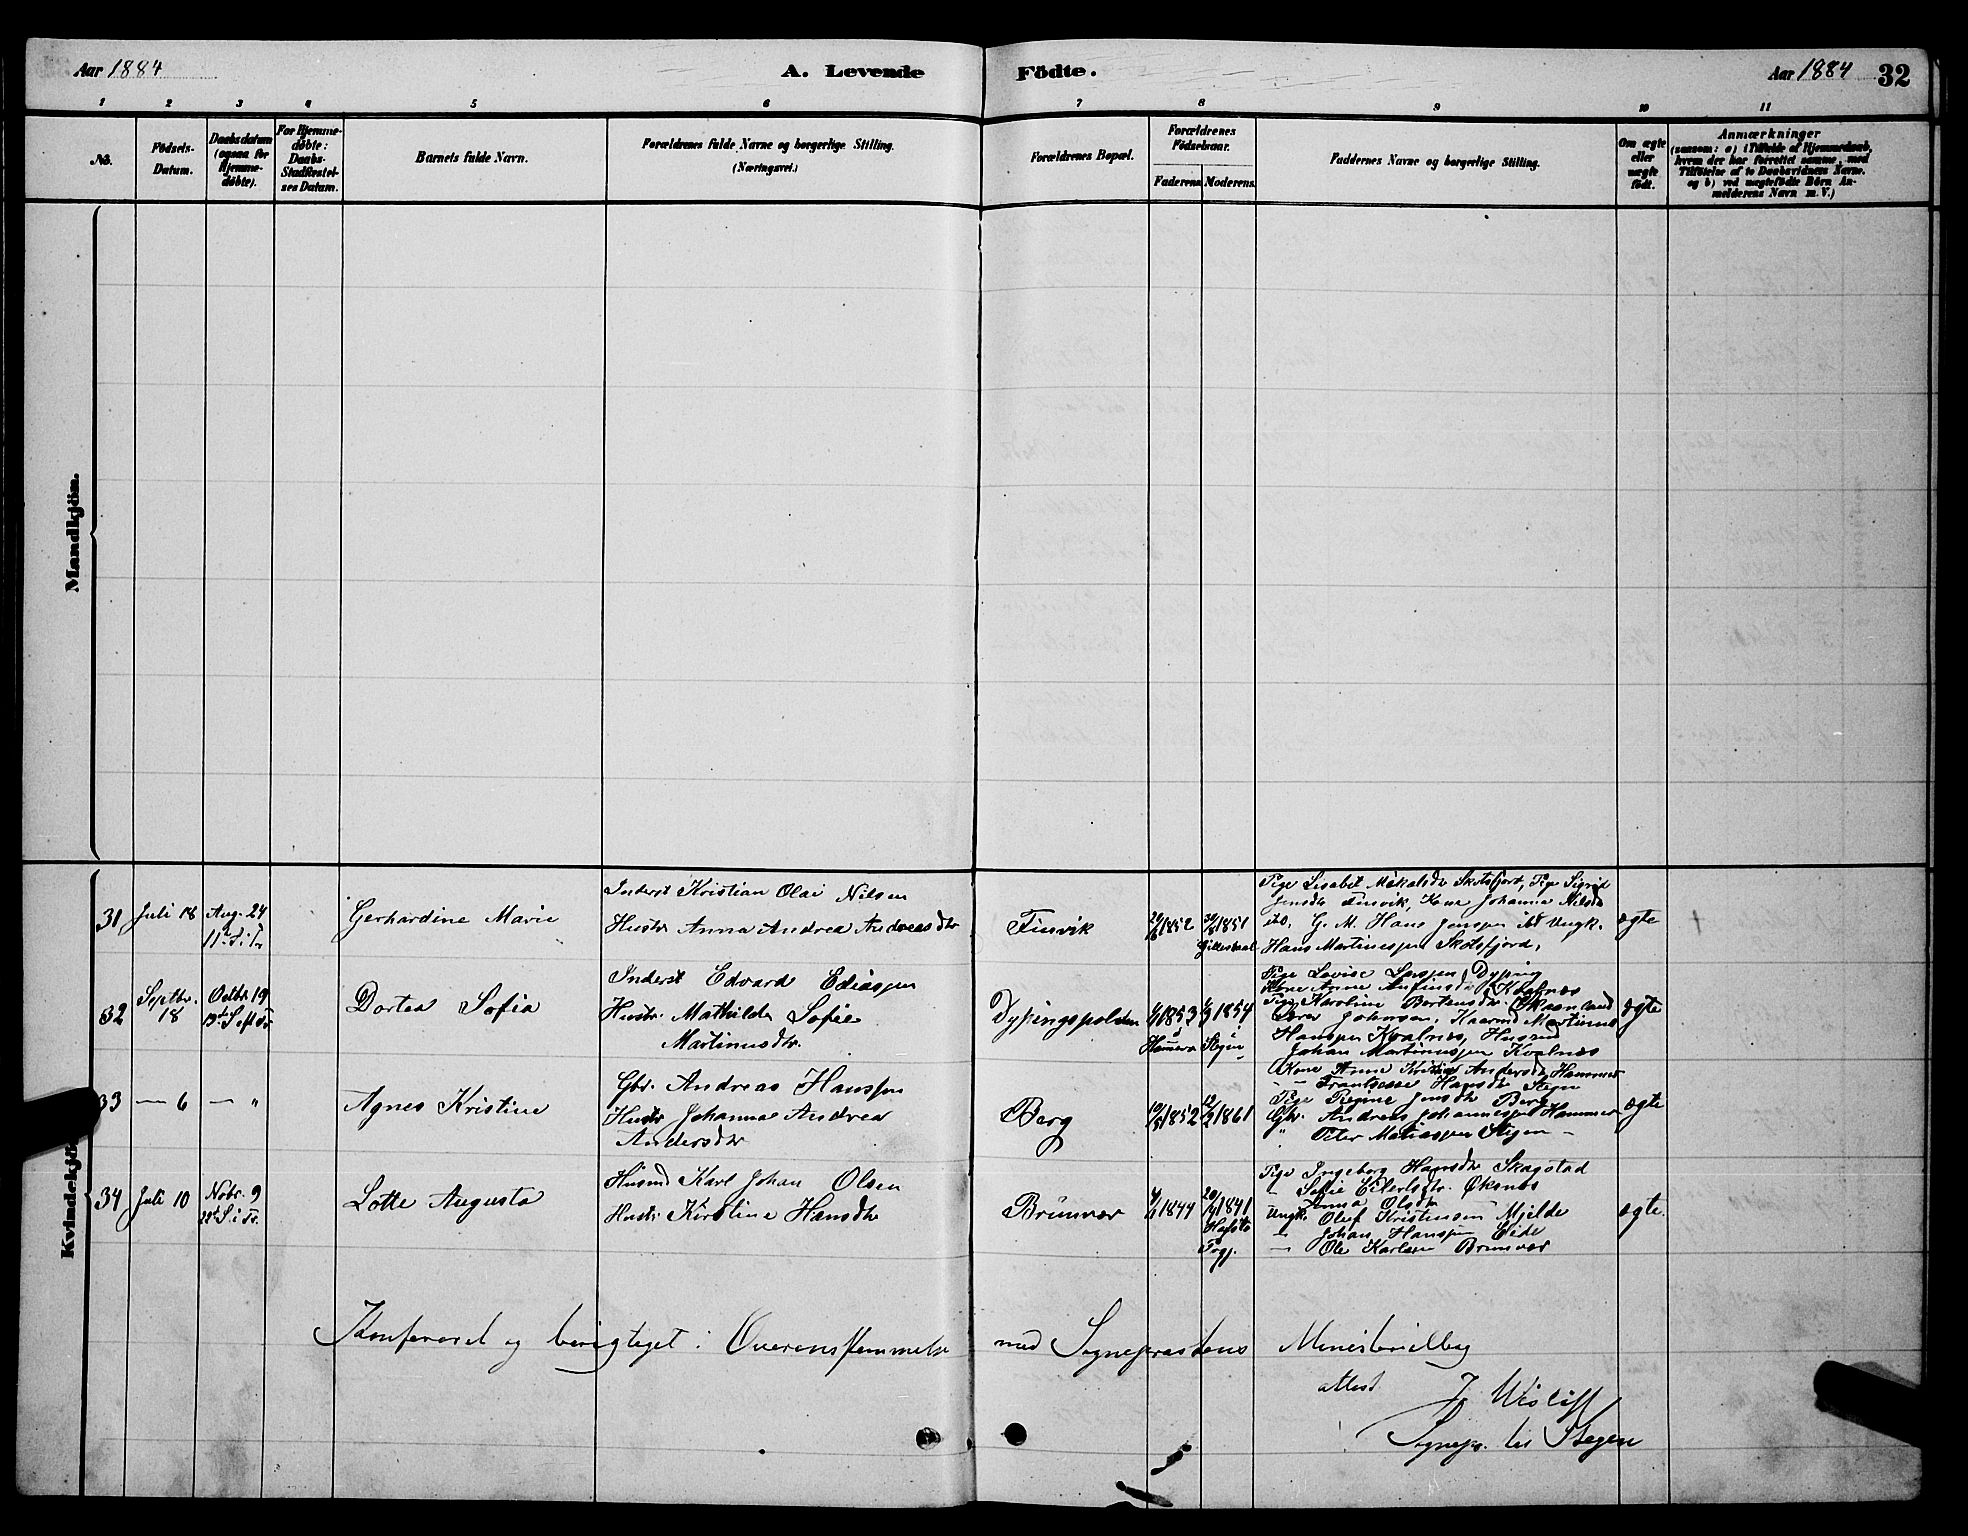 Aar 1884
A. Levende Födte.
Aar 1884 32
1 2 3 4 5 6 7 8 9 10 11
No.
Födsels-
Datum.
Daabsdatum
(ogsaa for
Hjemme-
døbte).
For Hjemme-
døbte:
Daabs-
Stadfæstel-
ses Datum.
Barnets fulde Navn.
Forældrenes fulde Navne og borgerlige Stilling.
(Næringsvei.)
Forældrenes Bopæl.
Forældrenes
Fødselsaar.
Faderens Moderens.
Faddernes Navne og borgerlige Stilling.
Om ægte
eller
uægte
født.
Anmærkninger
(saasom: a) i Tilfælde af Hjemmedaab,
hvem der har forrettet samme, med
Tilföielse af to Daabsvidners Navne,
og b) ved uægtefödte Börn An-
melderens Navn m. V.)
Mandkjön.
Kvindekjö
31 Juli 18 Aug. 24
Gerhardine Marie
Inderst Kristian Olai Nilsen
Hustr Anna Andrea Andreasdtr
Finvik
1852 1851
Gildeskaal
Pige Lisabet Mikalsdr Skotsfjord, Pige Sigrid
Jensdtr Finvik, Kone Johanna Nilsdr
G. M. Hans Jenssen ibd Ungk.
Hans Martinussen Skotsfjord,
ægte
32 Septbr. 18 Octbr 19
Dortea Sofia
Inderst Edvard Ediassen
Hustr. Mathilde Sofie
Martinusdtr.
Dypingspollen
1853 1854
Hamerø Stegen
Pige Lovise Larssen Dyping
Kone Anne Kvalnæs
Pige Karoline Bertensdtr. Skaanland
Johansen, Martinus
Hanssen Kvalnes, Husmd
Johan Martinussen Kvalnæs
ægte
33 — 6 — "
Agnes Kristine
Gbr. Andreas Hanssen
Hustr Johanna Andrea
Andersdtr
Berg
1852 1861
Kone Anne Andersdtr Hammer
— Hansdtr Stegen
Pige Regine Jensdtr Berg
Gbr. Andreas Johannessen Hammer
" Peter Matiassen Stegen —
ægte
34 Juli 10 Nobr. 9
Lotte Augusta
Husmd Karl Johan Olsen
Hustr Kirstine Hansdtr
Brunvær
1844 1841
Pige Ingeborg Hansdtr Skagstad
— Sofie Eilertsdtr. Øksnes
Anna Olsdtr
Ungk. Oluf Kristensen Mjelde
— Johan Hanssen Eide
— Ole Karlsen Brunvær
ægte.
Konfereret og berigtiget i Overensstemmelse med Sogneprestens Ministerialbog
attest
J. Wisløff
Sognepr. til Stegen